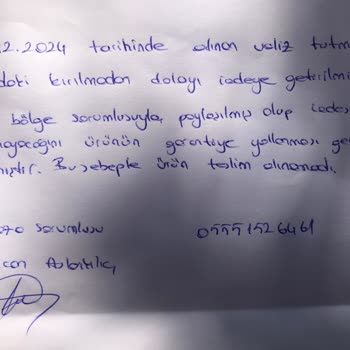 2.2024 tarihinde alınan valiz tutma
daki kırılmadan dolayı iadeye getirilmi
bölge sorumlusuyla, paylaşılmış olup iades
mayacağını ürünün garantiye yollanması ge
mıştır. Bu sebepte ürün teslim alınamadı.
sorumlusu 0555 152 6461
can